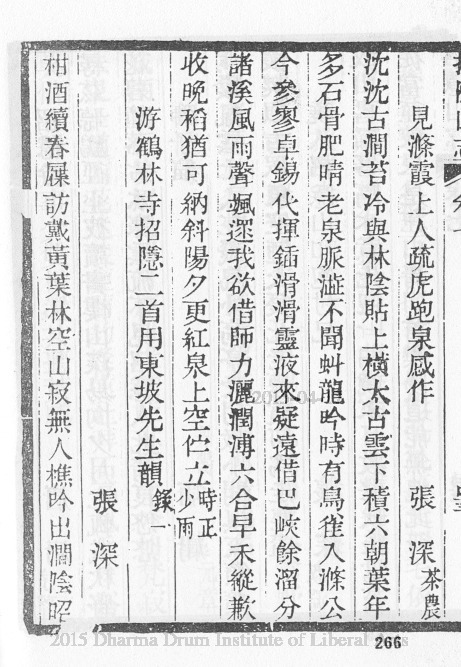 見滌霞上人疏虎跑泉感作 張深茶農
沈沈古澗苔冷與林陰貼上橫太古雲下積六朝葉年
多石骨肥晴老泉脈澁不聞虯龍吟時有鳥雀入滌公
今參寥卓錫代揮鍤滑滑靈液來疑遠借巴峽餘溜分
諸溪風雨聲颯遝我欲借師力灑潤溥六合早禾縱歉
收晚稻猶可納斜陽夕更紅泉上空伫立時正少雨
游鶴林寺招隱二首用東坡先生韻錄一
張深
柑酒續春屧訪戴黃葉林空山寂無人樵吟出澗陰
2015 Dharma Drum Institute of Liberal Arts
266